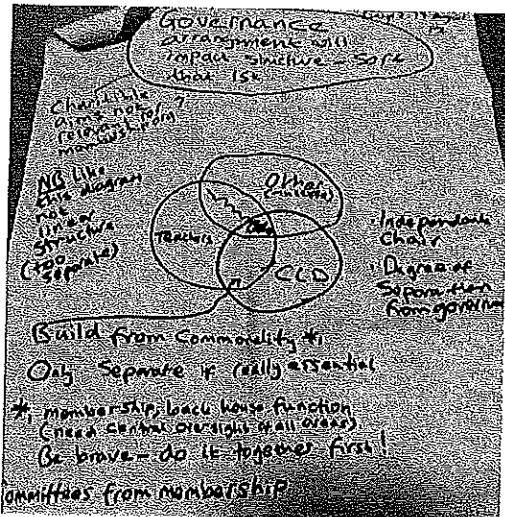 Governance
arrangement will
impact structure - sort
that 1st
Charitible
aims not ?
relevant for
membership org
NB like
this diagram
not
linker
structure
(too
separate)
Other
Teachers
CLD
Independant
Chair
Degree of
Separation
from governm
Build from Commonality *1
Only Separate if really essential
*1 membership, back house function
(need central oversight of all areas)
Be brave - do it together first!
ommittees from membership